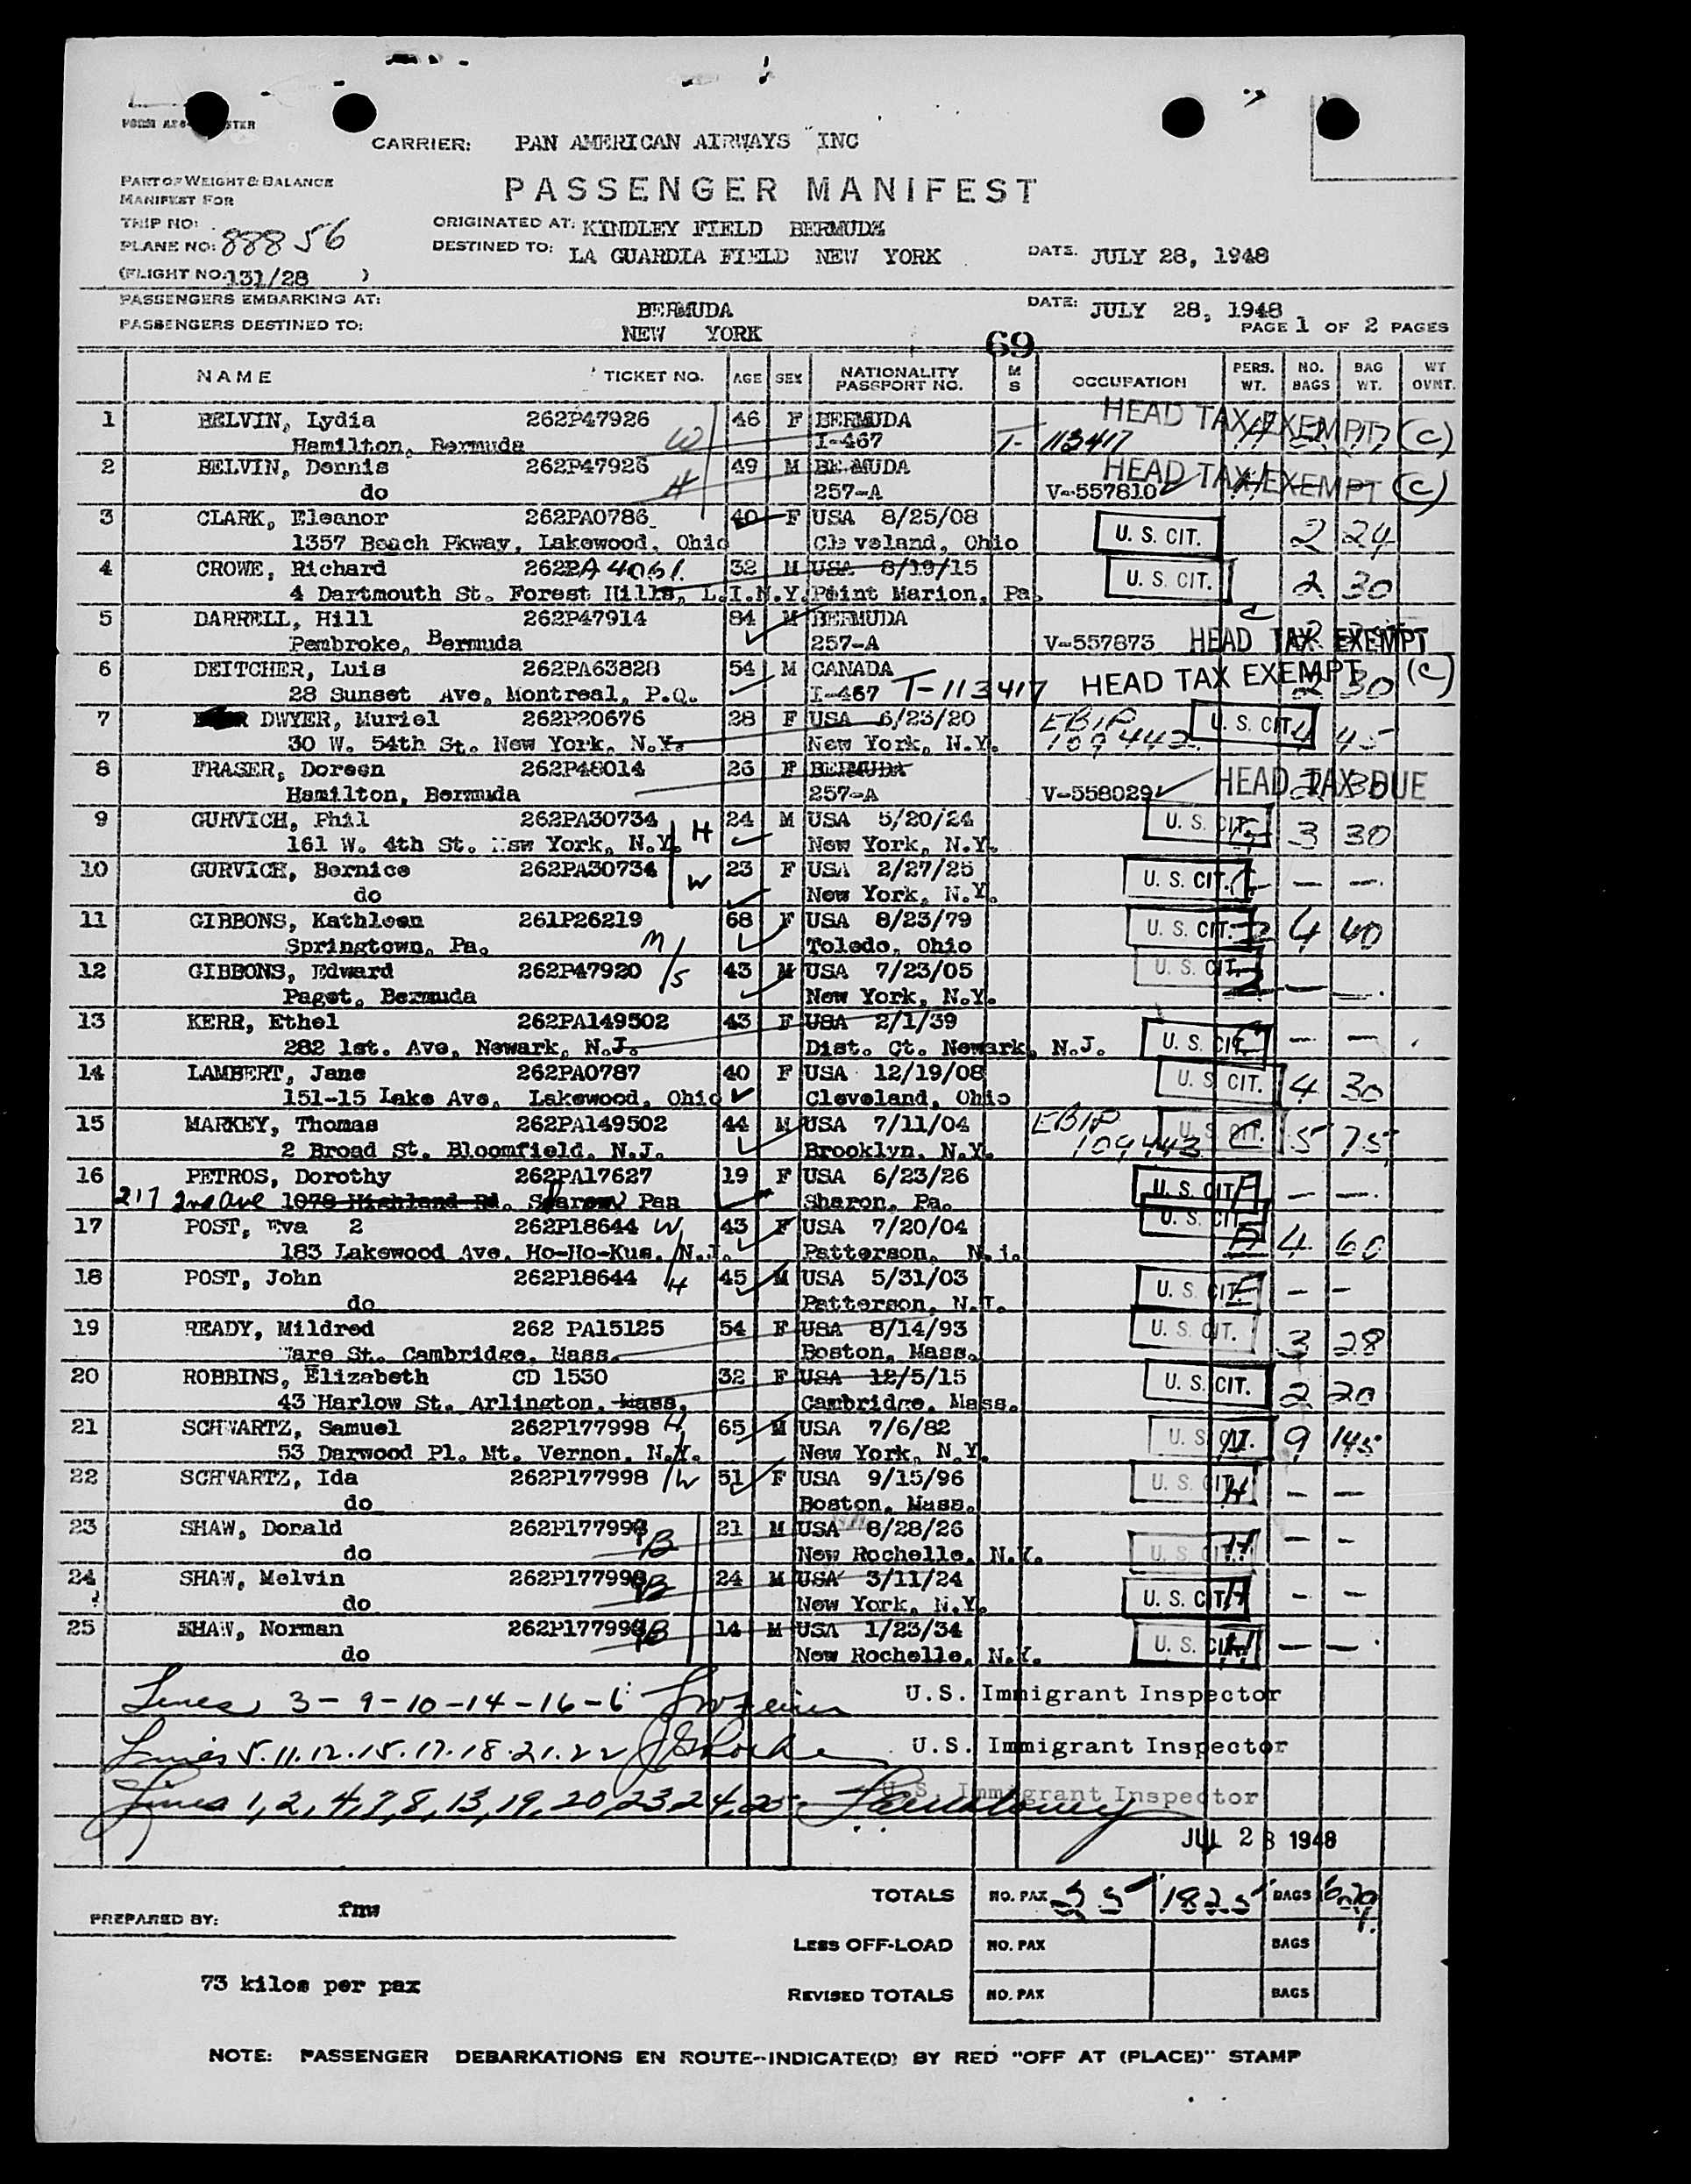 CARRIER: PAN AMERICAN AIRWAYS INC
PART OF WEIGHT & BALANCE
MANIFEST FOR
PASSENGER MANIFEST
TRIP NO:
PLANE NO: 88856
(FLIGHT NO: 131/28 )
ORIGINATED AT: KINDLEY FIELD BERMUDA
DESTINED TO: LA GUARDIA FIELD NEW YORK DATE: JULY 28, 1948
PASSENGERS EMBARKING AT: BERMUDA DATE: JULY 28, 1948
PASSENGERS DESTINED TO: NEW YORK PAGE 1 OF 2 PAGES
69
NAME TICKET NO. AGE SEX NATIONALITY PASSPORT NO. M S OCCUPATION PERS. WT. NO. BAGS BAG WT. WT OVNT.
1 BELVIN, Lydia 262P47926 46 F BERMUDA HEAD TAX EXEMPT (C)
Hamilton, Bermuda W I-467 T- 113417
2 BELVIN, Dennis 262P47926 49 M BERMUDA HEAD TAX EXEMPT (C)
do H 257-A V-557810
3 CLARK, Eleanor 262PA0786 40 F USA 8/25/08 U. S. CIT. 2 24
1357 Beach Pkway, Lakewood, Ohio Cleveland, Ohio
4 CROWE, Richard 262PA 4061 32 M USA 8/19/15 U. S. CIT. 2 30
4 Dartmouth St. Forest Hills, L.I.N.Y. Point Marion, Pa.
5 DARRELL, Hill 262P47914 84 M BERMUDA C
Pembroke, Bermuda 257-A V-557873 HEAD TAX EXEMPT
6 DEITCHER, Luis 262PA63828 54 M CANADA HEAD TAX EXEMPT (C)
28 Sunset Ave, Montreal, P.Q. I-467 T-113417 2 30
7 DWYER, Muriel 262P20676 28 F USA 6/23/20 U. S. CIT. 4 45
30 W. 54th St. New York, N.Y. New York, N.Y. 109442
8 FRASER, Doreen 262P48014 26 F BERMUDA HEAD TAX DUE
Hamilton, Bermuda 257-A V-558029
9 GURVICH, Phil 262PA30734 H 24 M USA 5/20/24 U. S. CIT. 3 30
161 W. 4th St. New York, N.Y. New York, N.Y.
10 GURVICH, Bernice 262PA30734 W 23 F USA 2/27/25 U. S. CIT. — —
do New York, N.Y.
11 GIBBONS, Kathleen 261P26219 68 F USA 8/23/79 U. S. CIT. 4 40
Springtown, Pa. M Toledo, Ohio
12 GIBBONS, Edward 262P47920 S 43 M USA 7/23/05 U. S. CIT. — —
Paget, Bermuda New York, N.Y.
13 KERR, Ethel 262PA149502 43 F USA 2/1/39 U. S. CIT. — —
282 1st. Ave, Newark, N.J. Dist. Ct. Newark, N.J.
14 LAMBERT, Jane 262PA0787 40 F USA 12/19/08 U. S. CIT. 4 30
151-15 Lake Ave, Lakewood, Ohio Cleveland, Ohio
15 MARKEY, Thomas 262PA149502 44 M USA 7/11/04 U. S. CIT. 5 75
2 Broad St. Bloomfield, N.J. Brooklyn, N.Y. 109443
16 PETROS, Dorothy 262PA17627 19 F USA 6/23/26 U. S. CIT. — —
217 2nd Ave 1078 Highland Rd. Sharon Paa Sharon, Pa.
17 POST, Eva 2 262P18644 W 43 F USA 7/20/04 U. S. CIT. 4 60
183 Lakewood Ave, Ho-Ho-Kus, N.J. Patterson, N.j.
18 POST, John 262P18644 H 45 M USA 5/31/03 U. S. CIT. — —
do Patterson, N.J.
19 READY, Mildred 262 PA15125 54 F USA 8/14/93 U. S. CIT. 3 28
Ware St. Cambridge, Mass. Boston, Mass.
20 ROBBINS, Elizabeth CD 1530 32 F USA 12/5/15 U. S. CIT. 2 20
43 Harlow St. Arlington, Mass. Cambridge, Mass.
21 SCHWARTZ, Samuel 262P177998 H 65 M USA 7/6/82 U. S. CIT. 9 145
53 Darwood Pl. Mt. Vernon, N.Y. New York, N.Y.
22 SCHWARTZ, Ida 262P177998 W 51 F USA 9/15/96 U. S. CIT. — —
do Boston, Mass.
23 SHAW, Donald 262P177998 B 21 M USA 8/28/26 U. S. CIT. — —
do New Rochelle, N.Y.
24 SHAW, Melvin 262P177998 B 24 M USA 3/11/24 U. S. CIT. — —
do New York, N.Y.
25 SHAW, Norman 262P177998 B 14 M USA 1/23/34 U. S. CIT. — —
do New Rochelle, N.Y.
Lines 3-9-10-14-16-6 U.S. Immigrant Inspector
Lines 5.11.12.15.17.18.21.22 U.S. Immigrant Inspector
Lines 1, 2, 4, 7, 8, 13, 19, 20, 23 24, 25 U.S. Immigrant Inspector
JUL 28 1948
TOTALS NO. PAX 25 1825 BAGS
PREPARED BY: fmw
LESS OFF-LOAD NO. PAX BAGS
73 kilos per pax
REVISED TOTALS NO. PAX BAGS
NOTE: PASSENGER DEBARKATIONS EN ROUTE--INDICATE(D) BY RED "OFF AT (PLACE)" STAMP